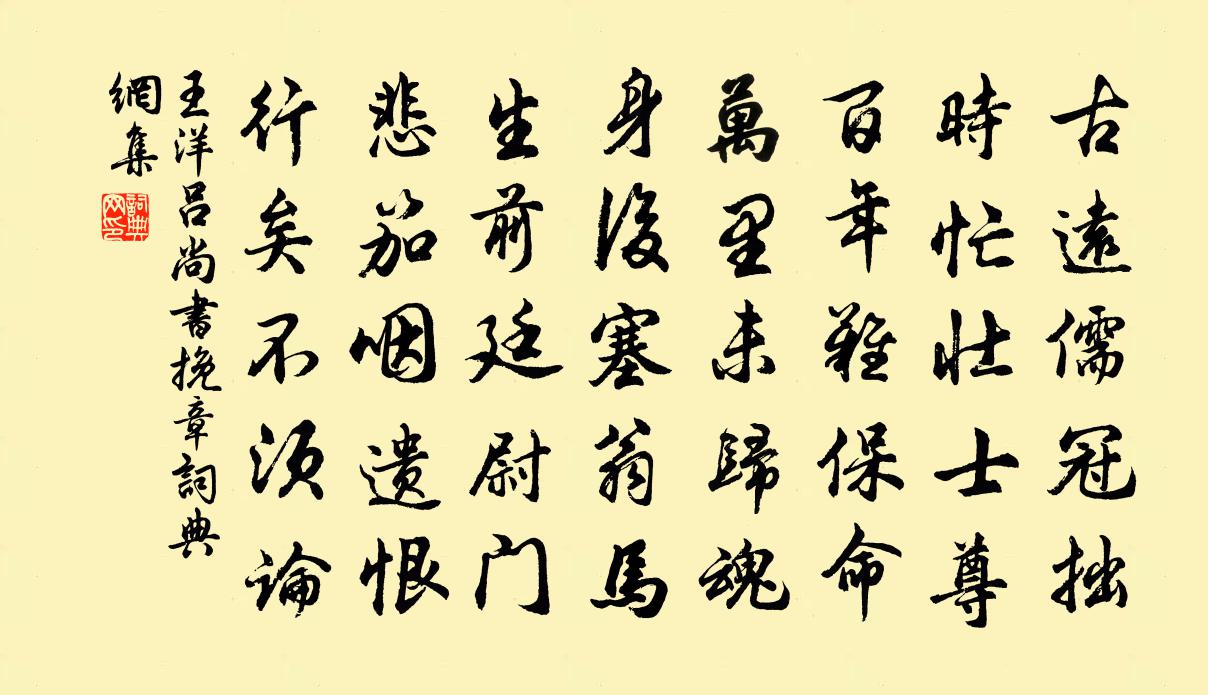 古遠儒冠拙
時忙壯士尊
百年難保命
萬里未歸魂
身後塞翁馬
生前廷尉门
悲笳咽遗恨
行矣不须論
王洋呂尚書挽章詞典
網集
詞典
网印